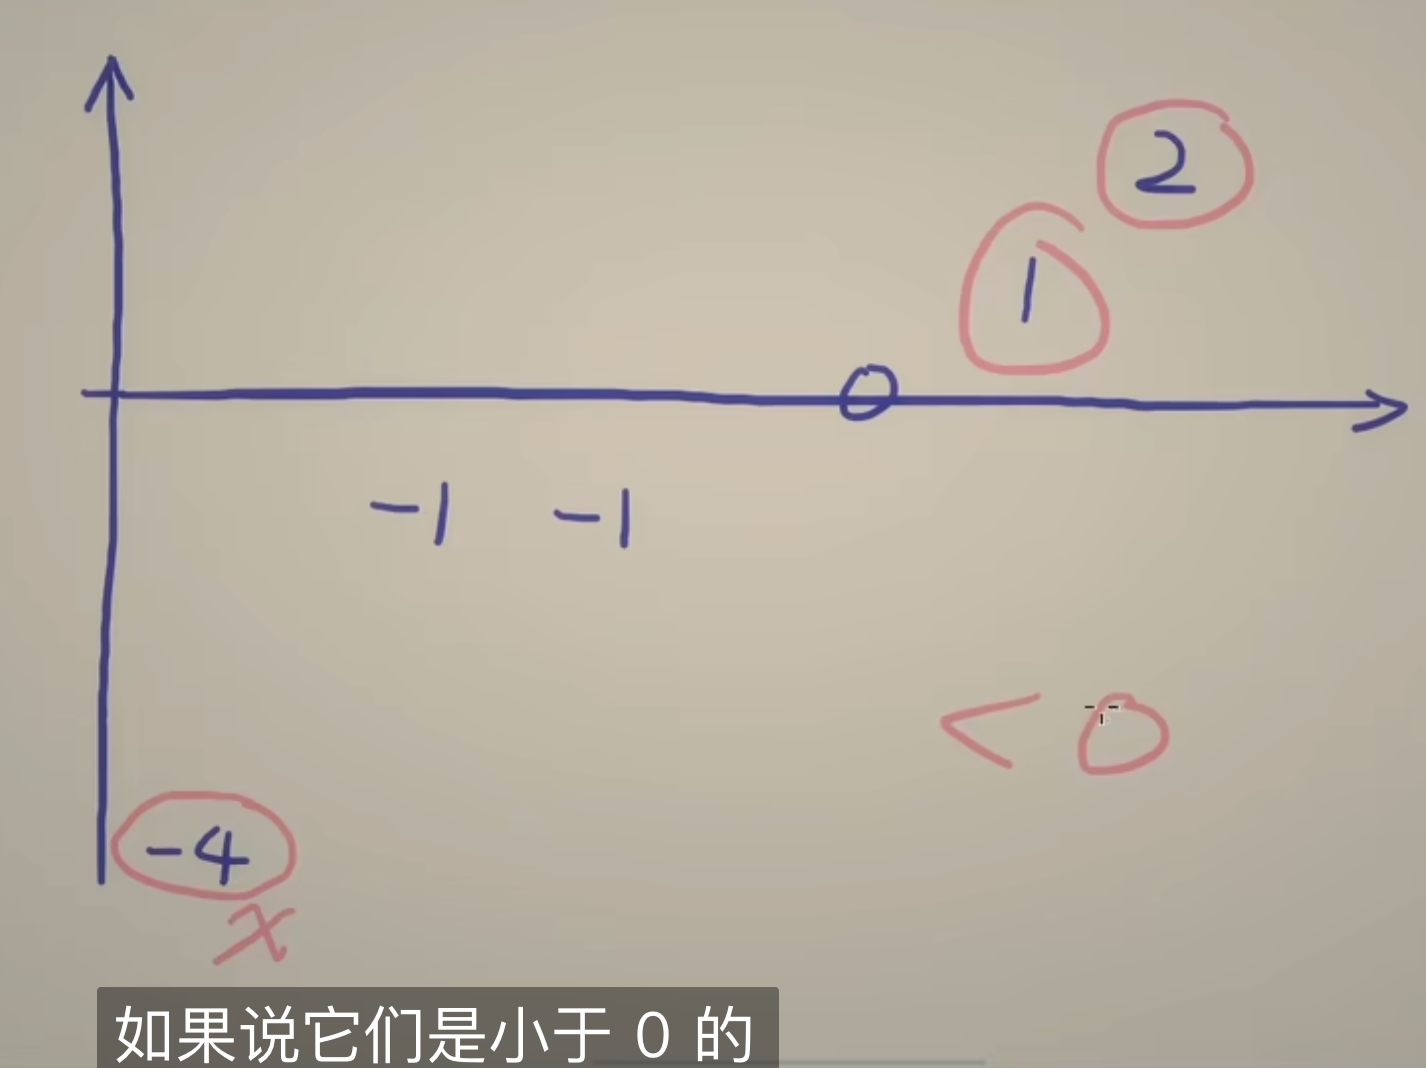 2
1
0
-1 -1
< 0
-4
x
如果说它们是小于 0 的